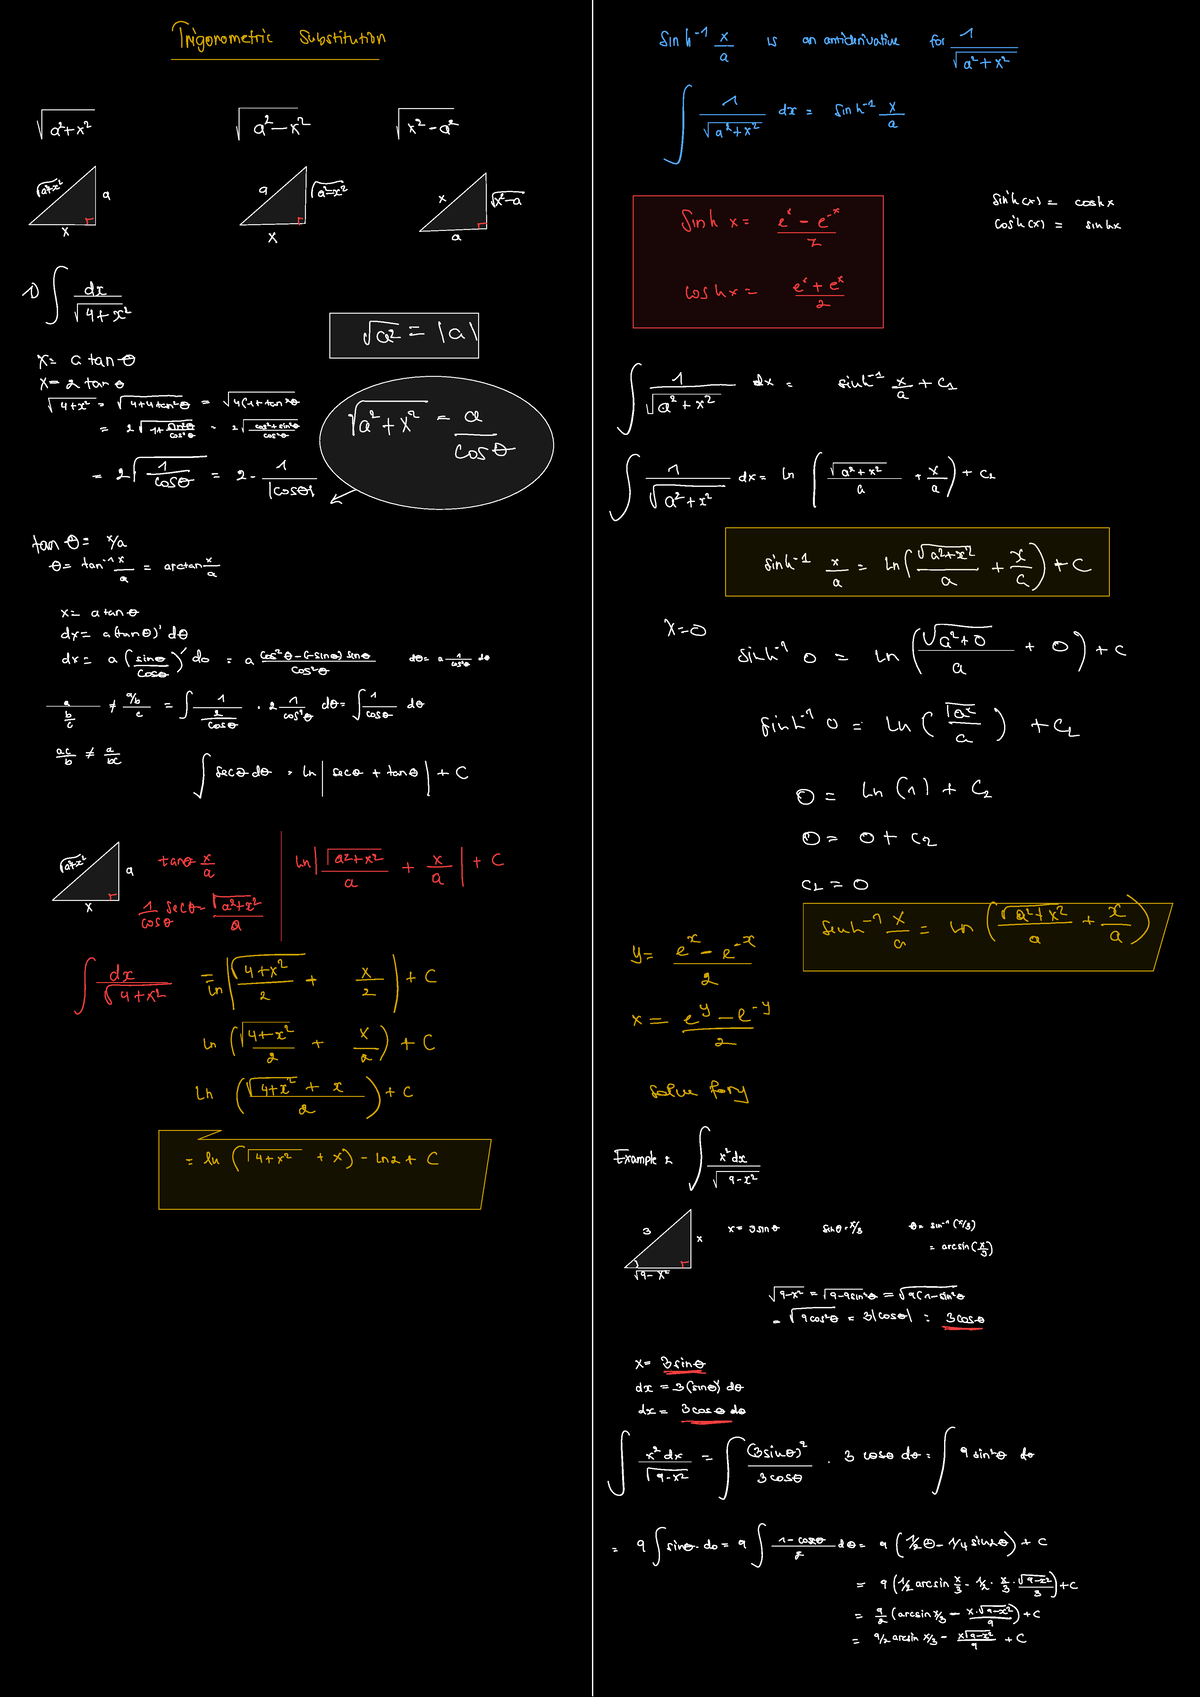 Trigonometric Substitution
√(a²+x²) √(a²-x²) √(x²-a²)
√(a²+x²) a x
a √(a²-x²) x
x √(x²-a) a
1) ∫ dx/√(4+x²)
√a² = |a|
x = a tan θ
x = 2 tan θ
√(4+x²) = √(4+4tan²θ) = √(4(1+tan²θ
= 2√(1+sin²θ/cos²θ) = 2√((cos²+sin²θ)/cos²θ)
= 2√(1/cosθ) = 2 · 1/|cosθ|
√(a²+x²) = a/cosθ
tan θ = x/a
θ = tan⁻¹ x/a = arctan x/a
x = a tan θ
dx = a(tan θ)' dθ
dx = a (sinθ/cosθ)' dθ = a (cos²θ-(-sinθ) sinθ)/cos²θ dθ = a 1/cos²θ dθ
a/(b/c) ≠ (a/b)/c = ∫ 1/(2/cosθ) · 2 1/cos²θ dθ = ∫ 1/cosθ dθ
ac/b ≠ a/bc
∫ secθ dθ = ln | secθ + tanθ | + C
√(a²+x²) a x
tanθ x/a
1/cosθ secθ = √(a²+x²)/a
ln | √(a²+x²)/a + x/a | + C
∫ dx/√(4+x²) = ln | √(4+x²)/2 + x/2 | + C
ln ( √(4+x²)/2 + x/2 ) + C
Ln ( (√(4+x²) + x)/2 ) + C
= ln (√(4+x²) + x) - ln2 + C
Sinh⁻¹ x/a is an antiderivative for 1/√(a²+x²)
∫ 1/√(a²+x²) dx = sinh⁻¹ x/a
Sinh x = (eˣ - e⁻ˣ)/2
cosh x = (eˣ + eˣ)/2
sin'h(x) = coshx
cos'h(x) = sinhx
∫ 1/√(a²+x²) dx = sinh⁻¹ x/a + C₁
∫ 1/√(a²+x²) dx = ln ( √(a²+x²)/a + x/a ) + C₂
sinh⁻¹ x/a = ln ( √(a²+x²)/a + x/a ) + C
x=0
sinh⁻¹ 0 = ln ( √(a²+0)/a + 0 ) + C
sinh⁻¹ 0 = ln ( √a²/a ) + C₂
0 = ln (1) + C₂
0 = 0 + C₂
C₂ = 0
sinh⁻¹ x/a = ln ( √(a²+x²)/a + x/a )
y = (eˣ - e⁻ˣ)/2
x = (eʸ - e⁻ʸ)/2
solve for y
Example 2 ∫ x²dx/√(9-x²)
3 x √(9-x²)
x = 3 sin θ sinθ = x/3 θ = sin⁻¹ (x/3)
= arcsin (x/3)
√(9-x²) = √(9-9sin²θ) = √(9(1-sin²θ
= √(9cos²θ) = 3|cosθ| = 3cosθ
x = 3sinθ
dx = 3(sinθ)' dθ
dx = 3cosθ dθ
∫ x²dx/√(9-x²) = ∫ (3sinθ)²/3cosθ · 3 cosθ dθ = ∫ 9 sin²θ dθ
= 9 ∫ sinθ · dθ = 9 ∫ (1-cosθ)/2 dθ = 9 ( 1/2 θ - 1/4 sin2θ ) + C
= 9 ( 1/2 arcsin x/3 - 1/2 · x/3 · √(9-x²)/3 ) + C
= 9/2 ( arcsin x/3 - x·√(9-x²)/9 ) + C
= 9/2 arcsin x/3 - x√(9-x²)/9 + C